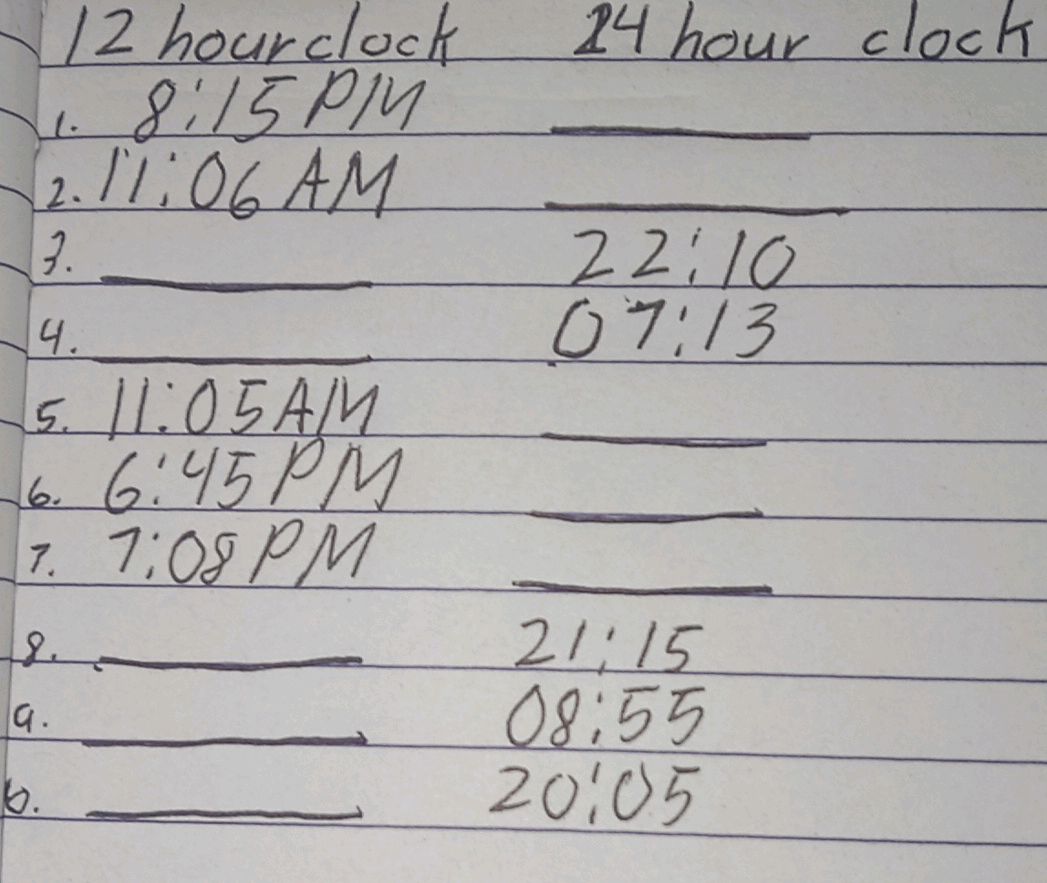 12 hour clock 24 hour clock
1. 8:15 PM
2. 11:06 AM
3. 22:10
4. 07:13
5. 11:05 AM
6. 6:45 PM
7. 7:08 PM
8. 21:15
9. 08:55
10. 20:05